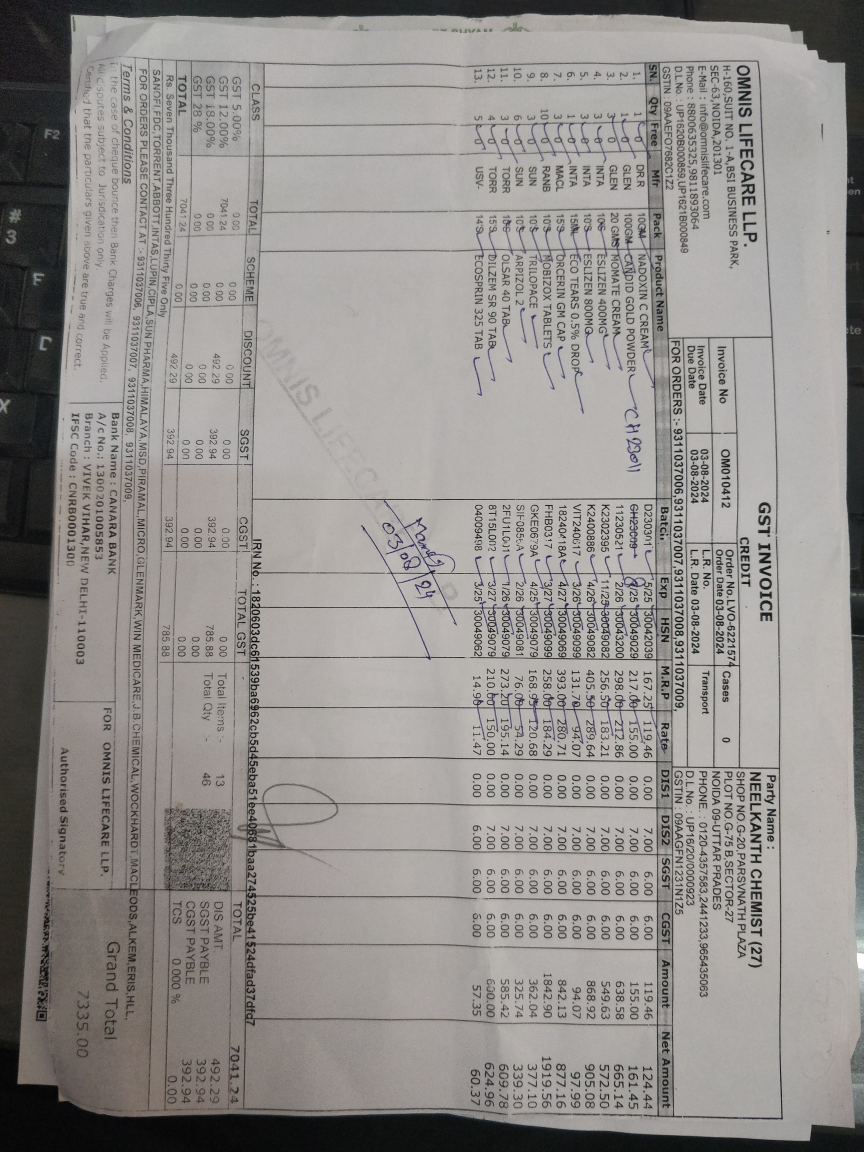 OMNIS LIFECARE LLP.
H-160,SUIT NO. 1-A,BSI BUSINESS PARK,
SEC-63,NOIDA,201301
E-Mail : info@omnislifecare.com
Phone : 8800635325,9811893064
D.L.No : UP1620B000859,UP1621B000849
GSTIN : 09AAEFO7682C1Z2
GST INVOICE
CREDIT
Invoice No OM010412
Invoice Date 03-08-2024
Due Date 03-08-2024
Order No. LVO-6221574
Order Date 03-08-2024
L.R. No.
L.R. Date 03-08-2024
Cases 0
Transport
FOR ORDERS :- 9311037006,9311037007,9311037008,9311037009,
Party Name :
NEELKANTH CHEMIST (27)
SHOP NO.G-20,PARSVNATH PLAZA
PLOT NO.G-75 B,SECTOR-27
NOIDA 09-UTTAR PRADES
PHONE : 0120-4357583,2441233,965435063
D.L.No. : UP16/20/0000923
GSTIN : 09AAGFN1231N1Z5
SN. Qty Free Mfr Pack Product Name Batch Exp HSN M.R.P Rate DIS1 DIS2 SGST CGST Amount Net Amount
1. 1 0 DR.R 10GM NADOXIN C CREAM D230301 5/25 30042039 167.25 119.46 0.00 7.00 6.00 6.00 119.46 124.44
2. 1 0 GLEN 100GM CANDID GOLD POWDER CH23011 CH23009 8/25 30049029 217.00 155.00 0.00 7.00 6.00 6.00 155.00 161.45
3. 3 0 GLEN 20 GMS MOMATE CREAM 11230521 2/26 30043200 298.00 212.86 0.00 7.00 6.00 6.00 638.58 665.14
4. 3 0 INTA 10'S ESLIZEN 400MG K2302395 11/25 30049082 256.50 183.21 0.00 7.00 6.00 6.00 549.63 572.50
5. 3 0 INTA 10'S ESLIZEN 800MG K2400886 4/26 30049082 405.50 289.64 0.00 7.00 6.00 6.00 868.92 905.08
6. 1 0 INTA 15ML ECO TEARS 0.5% DROP VIT240617 3/26 30049099 131.70 94.07 0.00 7.00 6.00 6.00 94.07 97.99
7. 3 0 MACL 15'S ORCERIN GM CAP 18240418A 4/27 30049069 393.00 280.71 0.00 7.00 6.00 6.00 842.13 877.16
8. 10 0 RANB 10'S MOBIZOX TABLETS FHB0317 3/27 30049099 258.00 184.29 0.00 7.00 6.00 6.00 1842.90 1919.56
9. 3 0 SUN 10'S TRILOPACE GKE0679A 4/25 30049079 168.95 120.68 0.00 7.00 6.00 6.00 362.04 377.10
10. 6 0 SUN 10'S ARPIZOL 2 2/26 30049081 76.00 54.29 0.00 7.00 6.00 6.00 325.74 339.30
11. 3 0 TORR OLSAR 40 TAB 1/26 30049079 273.20 195.14 0.00 7.00 6.00 6.00 585.42 609.78
12. 4 0 TORR 15'S DILZEM SR 90 TAB 3/27 30049079 210.00 150.00 0.00 7.00 6.00 6.00 600.00 624.96
13. 5 0 USV- 14'S ECOSPRIN 325 TAB 04009498 3/25 30049062 14.96 11.47 0.00 6.00 6.00 6.00 57.35 60.37
03/08/24
OMNIS LIFECARE
IRN No. : 1820603dc61539ba6962cb5d45eba51ee40681baa274525be41524dfad37dfd7
CLASS TOTAL SCHEME DISCOUNT SGST CGST TOTAL GST
GST 5.00% 0.00 0.00 0.00 0.00 0.00 0.00
GST 12.00% 7041.24 0.00 492.29 392.94 392.94 785.88
GST 18.00% 0.00 0.00 0.00 0.00 0.00 0.00
GST 28 % 0.00 0.00 0.00 0.00 0.00 0.00
TOTAL 7041.24 0.00 492.29 392.94 392.94 785.88
Total Items :- 13
Total Qty :- 46
TOTAL 7041.24
DIS AMT. 492.29
SGST PAYBLE 392.94
CGST PAYBLE 392.94
TCS 0.000 % 0.00
Rs. Seven Thousand Three Hundred Thirty Five Only
SANOFI,FDC,TORRENT,ABBOTT,INTAS,LUPIN,CIPLA,SUN PHARMA,HIMALAYA,MSD,PIRAMAL,MICRO,GLENMARK,WIN MEDICARE,J.B CHEMICAL,WOCKHARDT,MACLEODS,ALKEM,ERIS,HLL,
FOR ORDERS PLEASE CONTACT AT :- 9311037006, 9311037007, 9311037008, 9311037009,
Terms & Conditions
In the case of cheque bounce then Bank Charges will be Applied.
All disputes subject to Jurisdication only.
Certified that the particulars given above are true and correct.
Bank Name : CANARA BANK
A/c No.: 1300201005853
Branch : VIVEK VIHAR,NEW DELHI-110003
IFSC Code : CNRB0001300
FOR OMNIS LIFECARE LLP.
Authorised Signatory
Grand Total
7335.00
F2
#
3
E
C
X